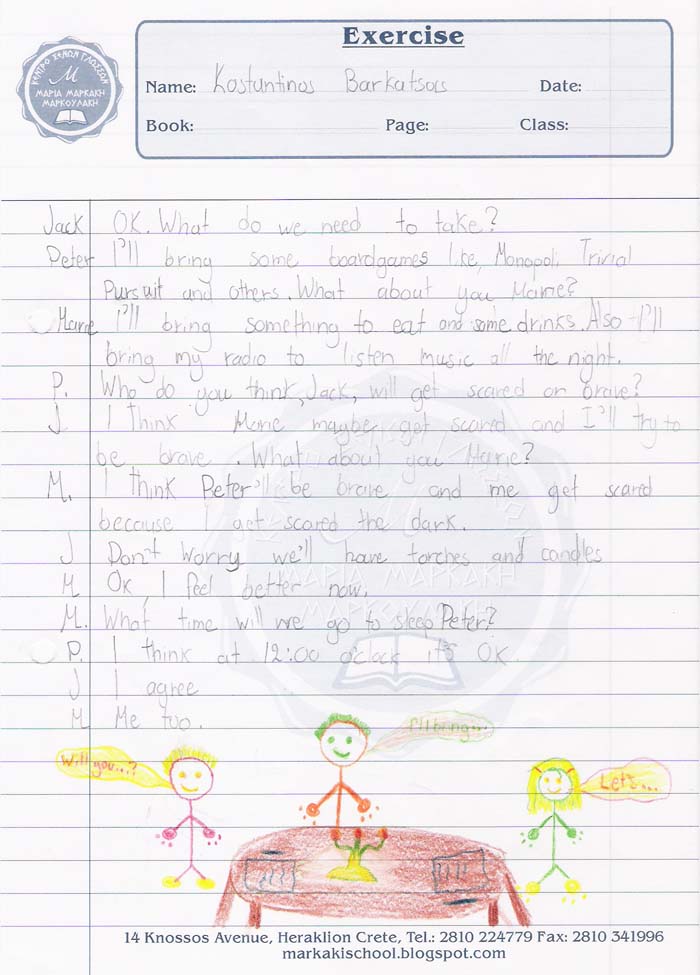 ΚΕΝΤΡΟ ΞΕΝΩΝ ΓΛΩΣΣΩΝ
M
ΜΑΡΙΑ ΜΑΡΚΑΚΗ
ΜΑΡΚΟΥΛΑΚΗ
Exercise
Name: Kostuntinos Barkatsas Date:
Book: Page: Class:
Jack OK. What do we need to take?
Peter I'll bring some boardgames like, Monopoli, Trivial
Pursuit and others. What about you Marie?
Marie I'll bring something to eat and some drinks. Also I'll
bring my radio to listen music all the night.
P. Who do you think, Jack, will get scared or brave?
J. I think Marie maybe get scared and I'll try to
be brave. What about you Marie?
M. I think Peter'll be brave and me get scared
because I get scared the dark.
J Don't worry we'll have torches and candles
M Ok, I feel better now.
M. What time will we go to sleep Peter?
P. I think at 12:00 o'clock it's OK.
J I agree
M Me too.
Will you...?
I'll bring...
Let's...
ΜΑΡΙΑ ΜΑΡΚΑΚΗ
ΜΑΡΚΟΥΛΑΚΗ
14 Knossos Avenue, Heraklion Crete, Tel.: 2810 224779 Fax: 2810 341996
markakischool.blogspot.com